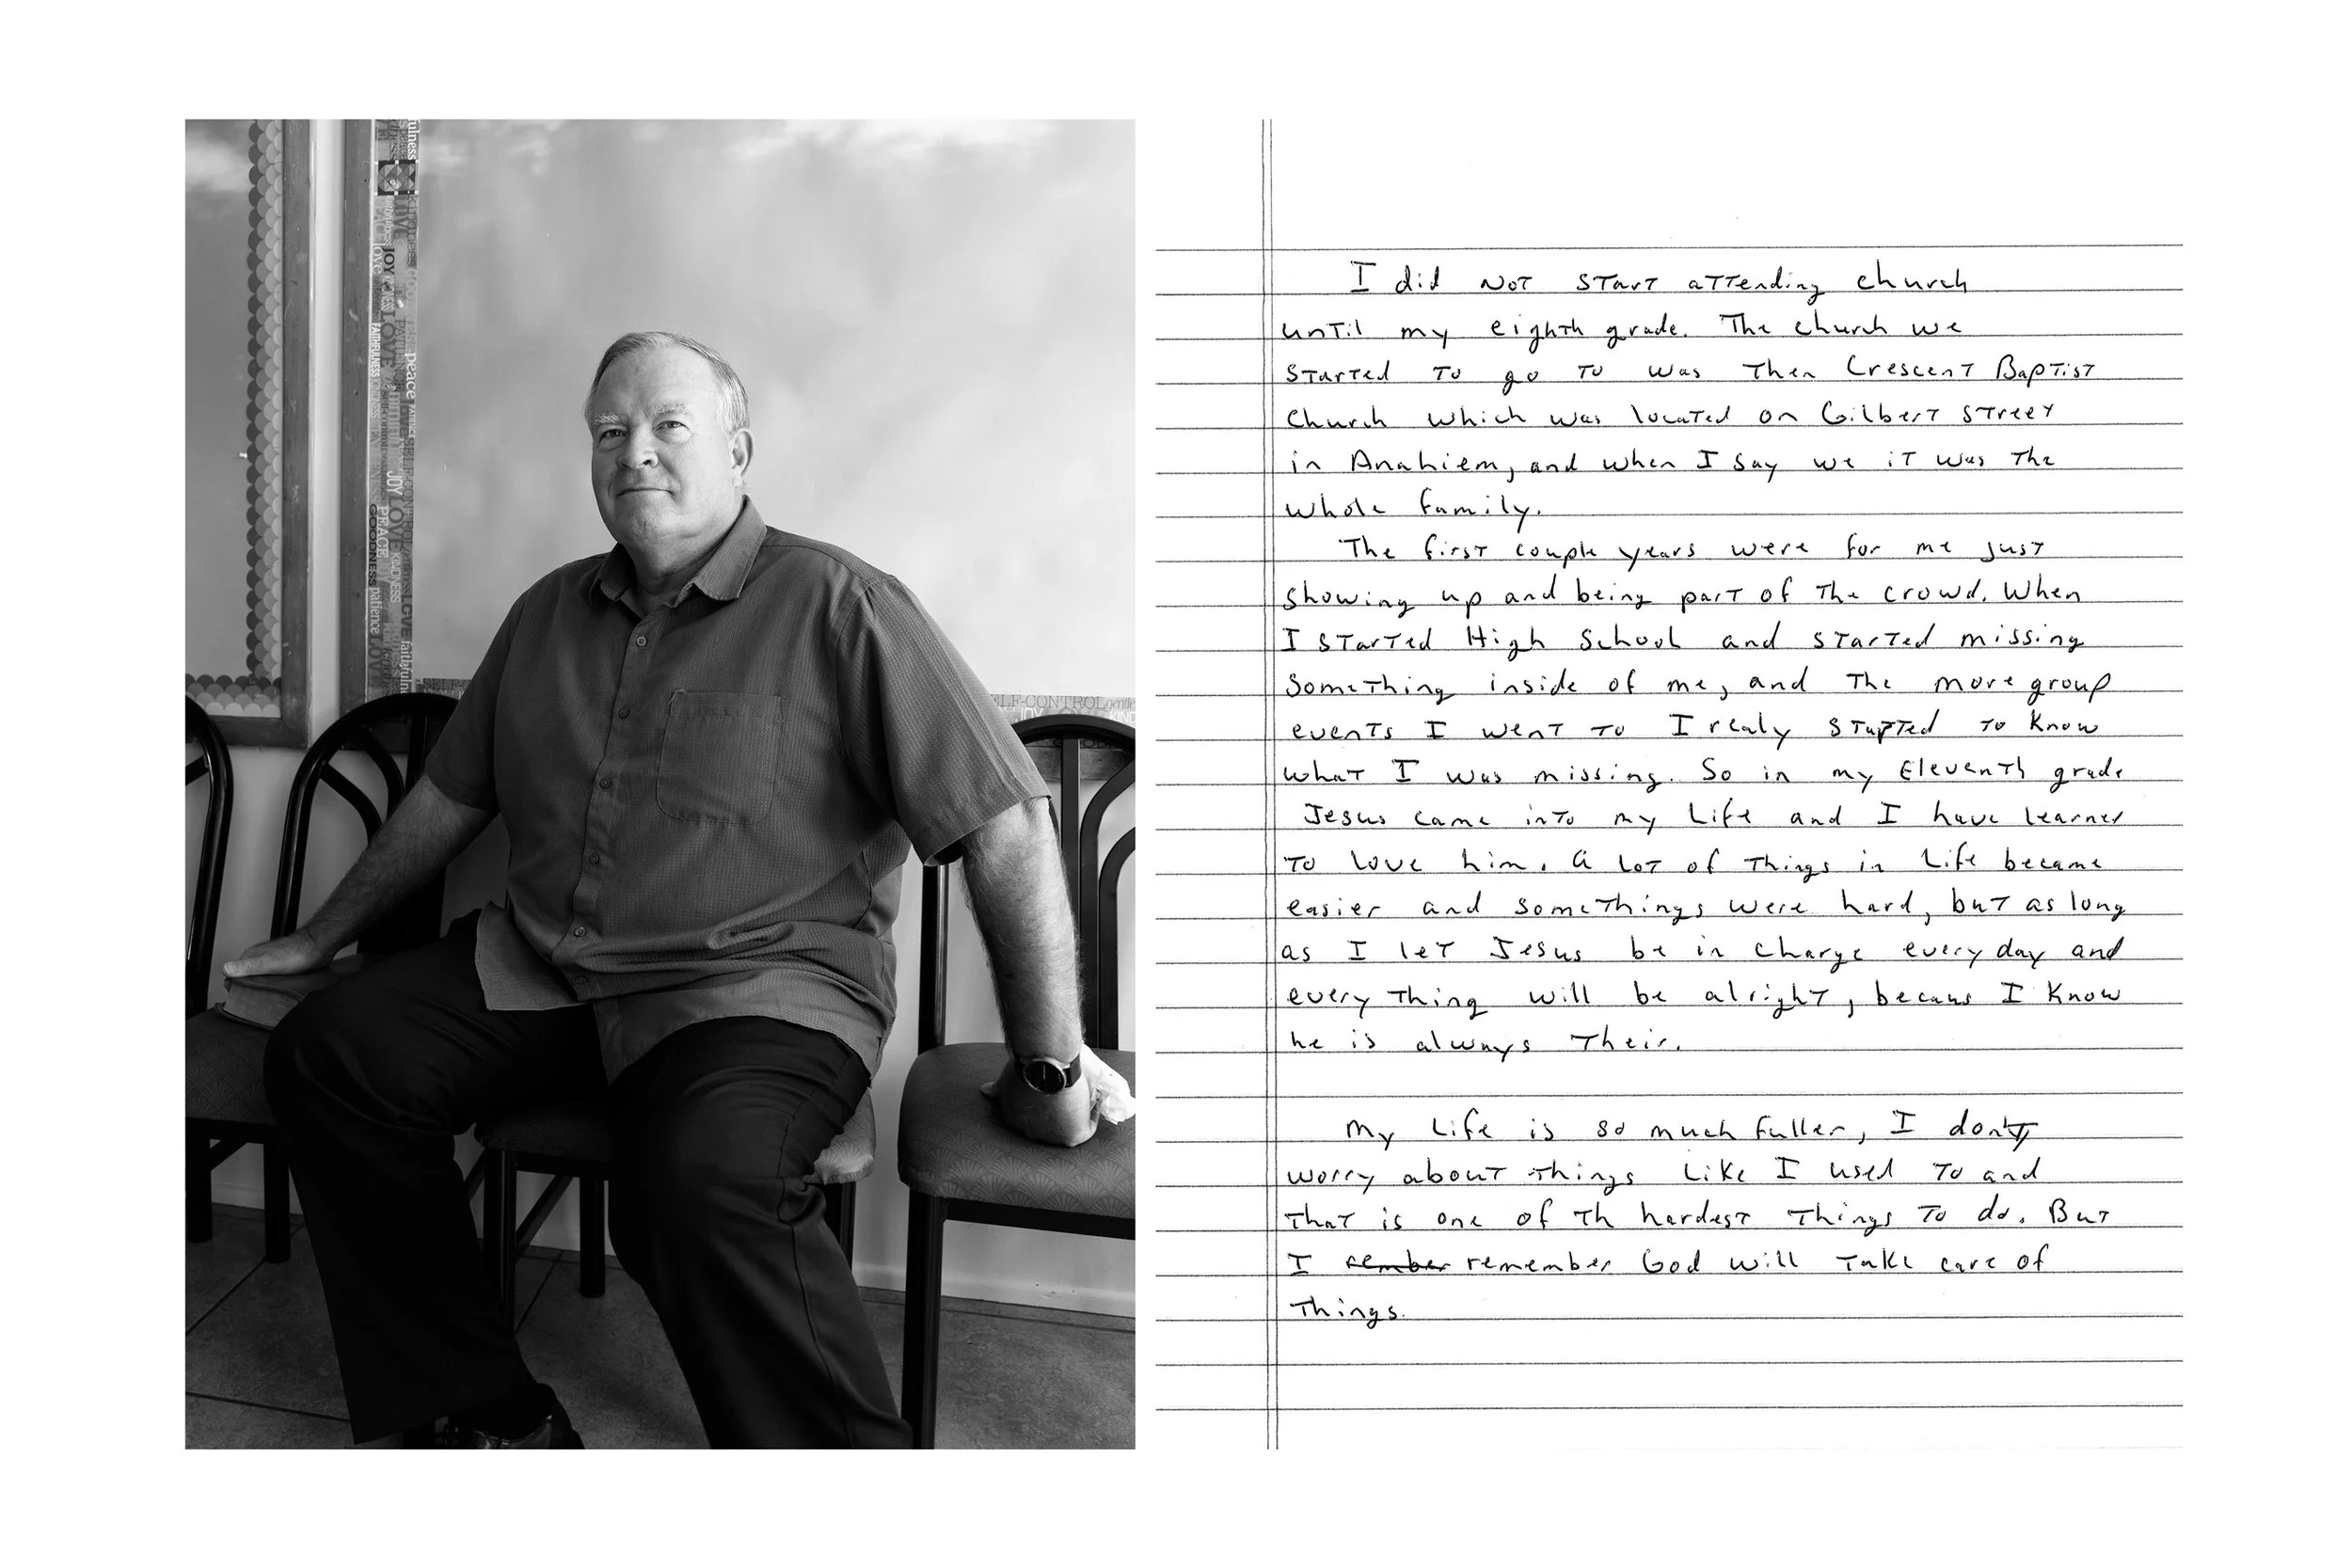 fulness
LOVE
JOY
LOVE
peace
FAITHFULNESS
JOY
LOVE
PEACE
GOODNESS
KINDNESS
patience
LOVE
SELF-CONTROL gentle
JOY
I did Not start attending church
until my eighth grade. The church we
started to go to was then Crescent Baptist
Church which was located on Gilbert street
in Anahiem, and when I say we it was the
whole family.
The first couple years were for me just
showing up and being part of the crowd. When
I started High School and started missing
something inside of me, and the more group
events I went to I realy started to know
what I was missing. So in my Eleventh grade
Jesus came into my Life and I have learned
to love him. A lot of things in Life became
easier and somethings were hard, but as long
as I let Jesus be in charge every day and
every thing will be alright, becaus I know
he is always their.
My Life is so much fuller, I don't
worry about things like I used to and
that is one of th hardest things to do. But
I rember remember God will take care of
things.